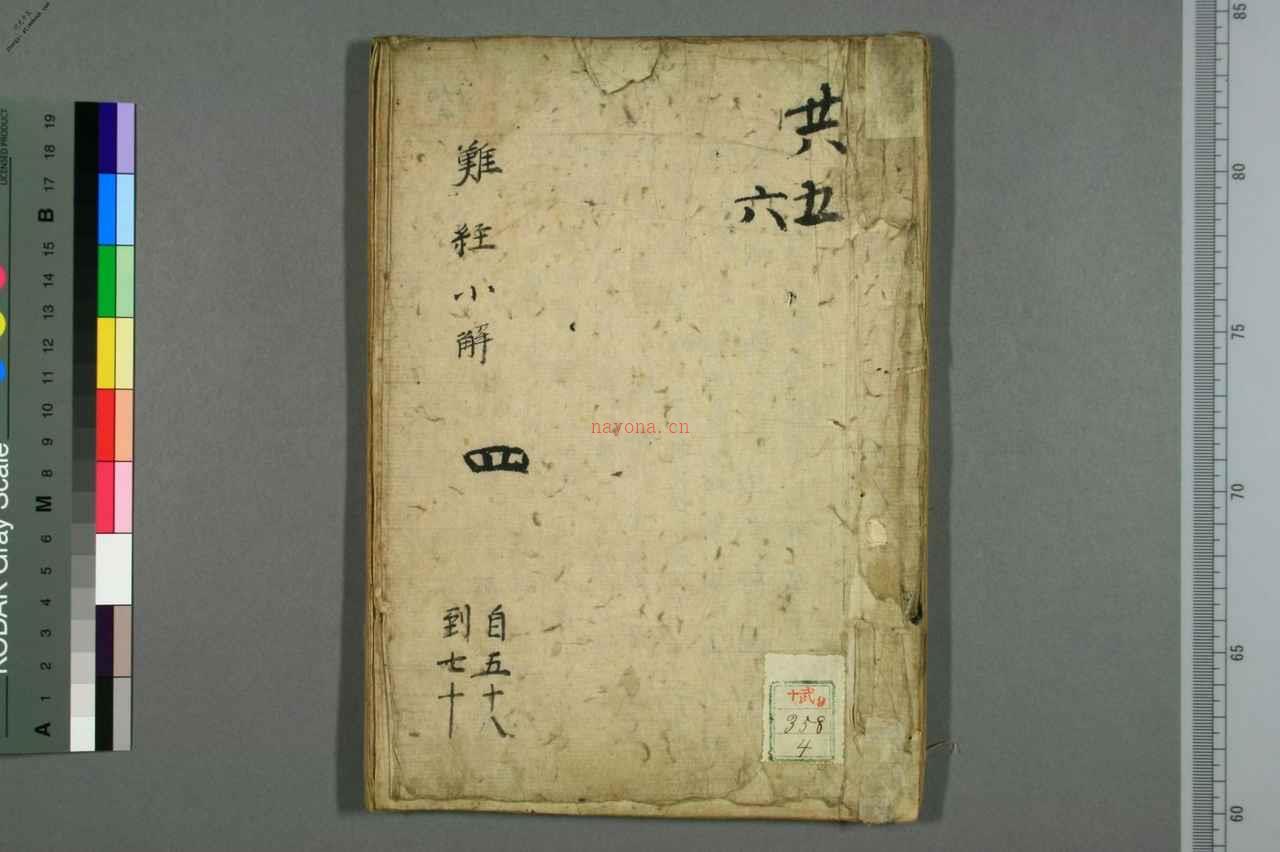 共五
六
難経小解 四
自五十八
到七十
358
4
nayona.cn
LICENSED PRODUCT
KODAK Gray Scale
A 1 2 3 4 5 6 M 8 9 10 11 12 13 14 15 B 17 18 19
85
80
75
70
65
60